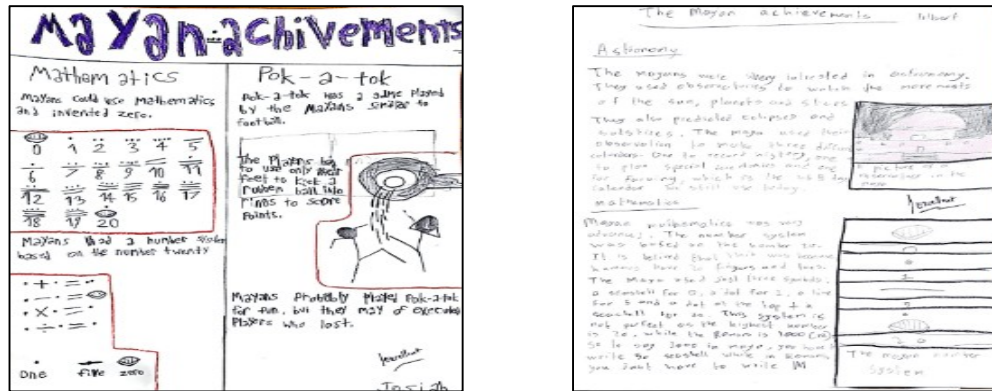 Mayan achivements
Mathematics
Mayans could use Mathematics
and invented zero.
0 1 2 3 4 5
6 7 8 9 10 11
12 13 14 15 16 17
18 19 20
Mayans had a number system
based on the number twenty
one five zero
Pok-a-tok
Pok-a-tok was a game played
by the Mayans similar to
football.
The Players had
to use only their
feet to kick a
rubber ball into
rings to score
Points.
Mayans Probably Played Pok-a-tok
for fun, but they may of executed
Players who lost.
Excellent
Josiah
The Mayan achievements
Astronomy
The mayans were very intrested in astronomy.
They used observatories to watch the movements
of the sun, planets and stars
They also predicted eclipses and
solstices. The maya used their
observation to make three different
calendars. One to record history, one
to plan special
for farming, which is the 365 day
calendar
mathmatics
Mayan
advanced. The number system
was based on the number 20.
It is belived that this was because
humans have 20 fingers and toes.
The Maya used just three symbols,
a seashell for 0, a dot for 1, a line
for 5 and a dot at the top + a
seashell for 20. This system is
not perfect as the highest number
is 20, while the Romans is 1000 (M)
So to say 1000 in maya, you have to
write 50 seashell while in Romans
you just have to write M
Excellent
The mayan number
system